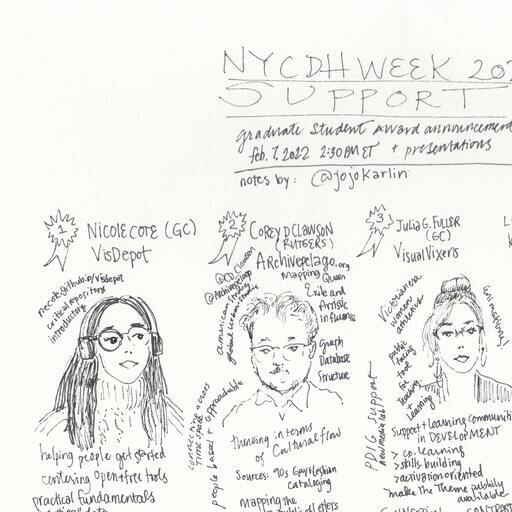 NYCDH WEEK 202
SUPPORT
graduate student award announcement
feb. 7, 2022 2:30 PM ET + presentations
notes by: @jojokarlin
1
NICOLE COTE (GC)
VisDepot
critical repository
introductory
helping people get started
centering open + free tools
practical fundamentals
2
COREY D CLAWSON
(RUTGERS)
ARchivepelago.org
@CD_Clawson
@Archivepelago
Mapping Queer
Exile and
Artistic
influence
graph
Database
structure
connecting across
time space
people based + approachable
thinking in terms
of Cultural flow
Sources: 90s Gay + Lesbian
cataloging
mapping the
3
JULIA G. FULLER
(GC)
VisualVixens
Victorian era
women
athletics
public
facing
tool
for
Teaching
+
Learning
PDIG support
new media lab
support + learning communiti
in DEVELOPMENT
> co-learning
> skills building
> activation oriented
make the theme publicly
available